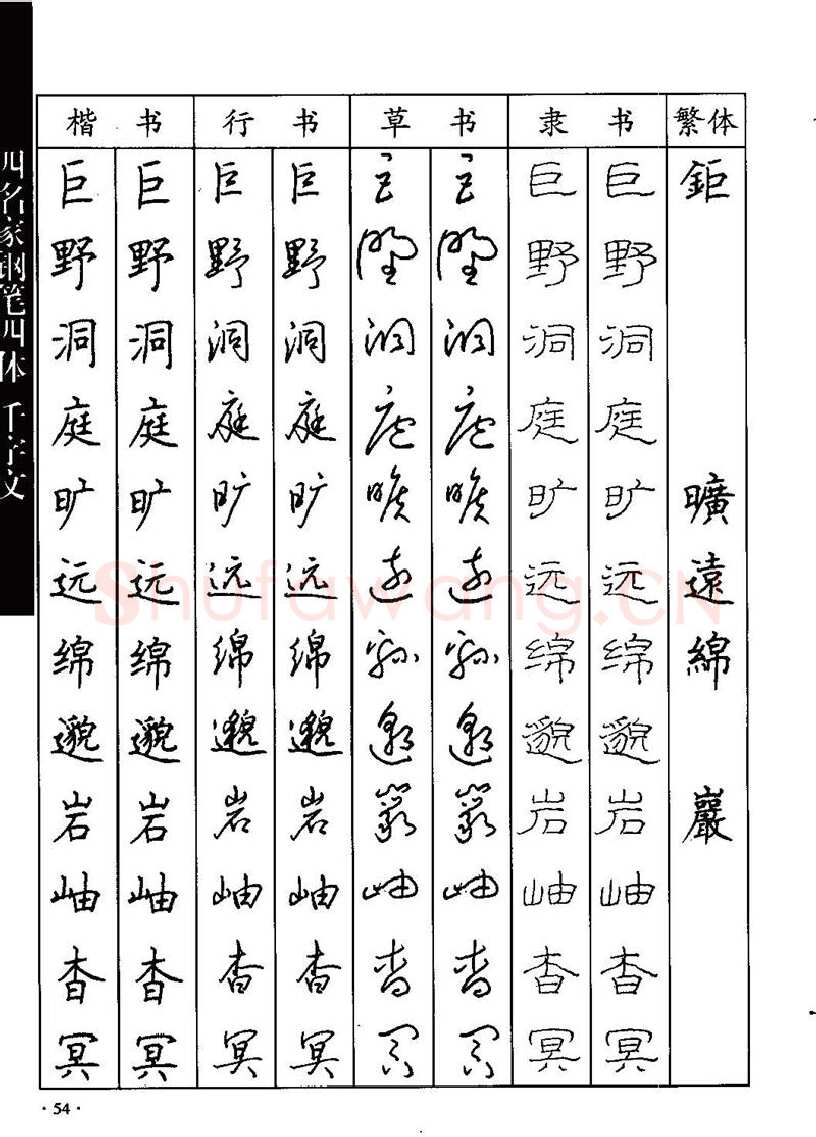 四名家钢笔四体 千字文
楷书 行书 草书 隶书 繁体
巨 巨 巨 巨 巨 巨 巨 巨 鉅
野 野 野 野 野 野 野 野
洞 洞 洞 洞 洞 洞 洞 洞
庭 庭 庭 庭 庭 庭 庭 庭
旷 旷 旷 旷 旷 旷 旷 旷 曠
远 远 远 远 远 远 远 远 遠
绵 绵 绵 绵 绵 绵 绵 绵 綿
邈 邈 邈 邈 邈 邈 邈 邈
岩 岩 岩 岩 岩 岩 岩 岩 巖
岫 岫 岫 岫 岫 岫 岫 岫
杳 杳 杳 杳 杳 杳 杳 杳
冥 冥 冥 冥 冥 冥 冥 冥
Shufawang.CN
· 54 ·